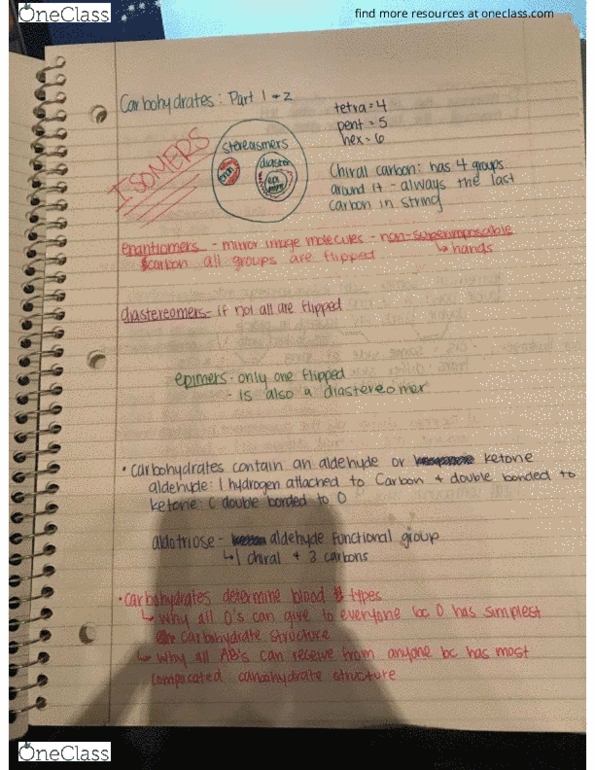 OneClass
find more resources at oneclass.com
Carbohydrates: Part 1 + 2
tetra = 4
pent = 5
hex = 6
ISOMERS
stereoismers
diaster
epi
Chiral carbon: has 4 groups
around it - always the last
carbon in string
enantiomers - mirror image molecules - non-superimposable
↳ hands
carbon all groups are flipped
diastereomers - if not all are flipped
epimers - only one flipped
- is also a diastereomer
• carbohydrates contain an aldehyde or ketone
aldehyde: 1 hydrogen attached to Carbon + double bonded to
ketone: C double bonded to O
aldotriose - aldehyde functional group
↳ 1 chiral + 3 carbons
• carbohydrates determine blood types
↳ why all O's can give to everyone bc O has simplest
carbohydrate structure
↳ why all AB's can receive from anyone bc has most
compacated carbohydrate structure
OneClass